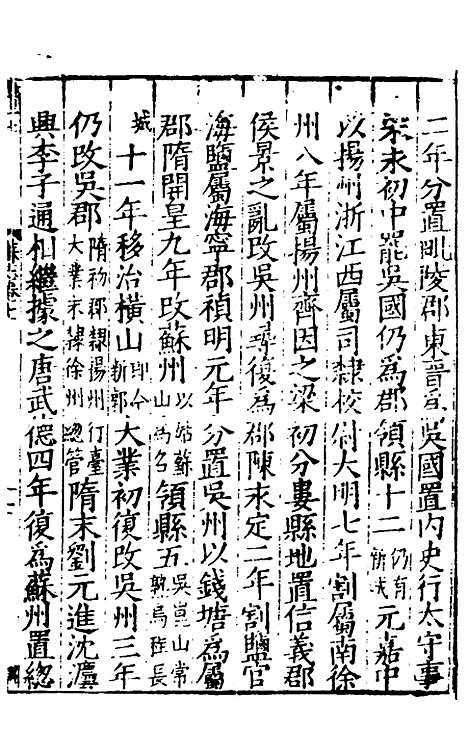 二年分置毗陵郡東晉爲吳國置内史行太守事
宋永初中罷吳國仍爲郡領縣十二仍有元嘉中
以揚州浙江西屬司隸校尉大明七年割屬南徐
州八年屬揚州齊因之梁初分婁縣地置信義郡
侯景之亂改吳州尋復爲郡陳永定二年割鹽官
海鹽屬海寧郡禎明元年分置吳州以錢塘爲屬
郡隋開皇九年改蘇州以姑蘇山爲名領縣五吳崑山常熟烏程長
城十一年移治橫山即今新郭大業初復改吳州三年
仍改吳郡隋初郡隸揚州行臺大業末隸徐州總管隋末劉元進沈法
興李子通相繼據之唐武德四年復爲蘇州置總